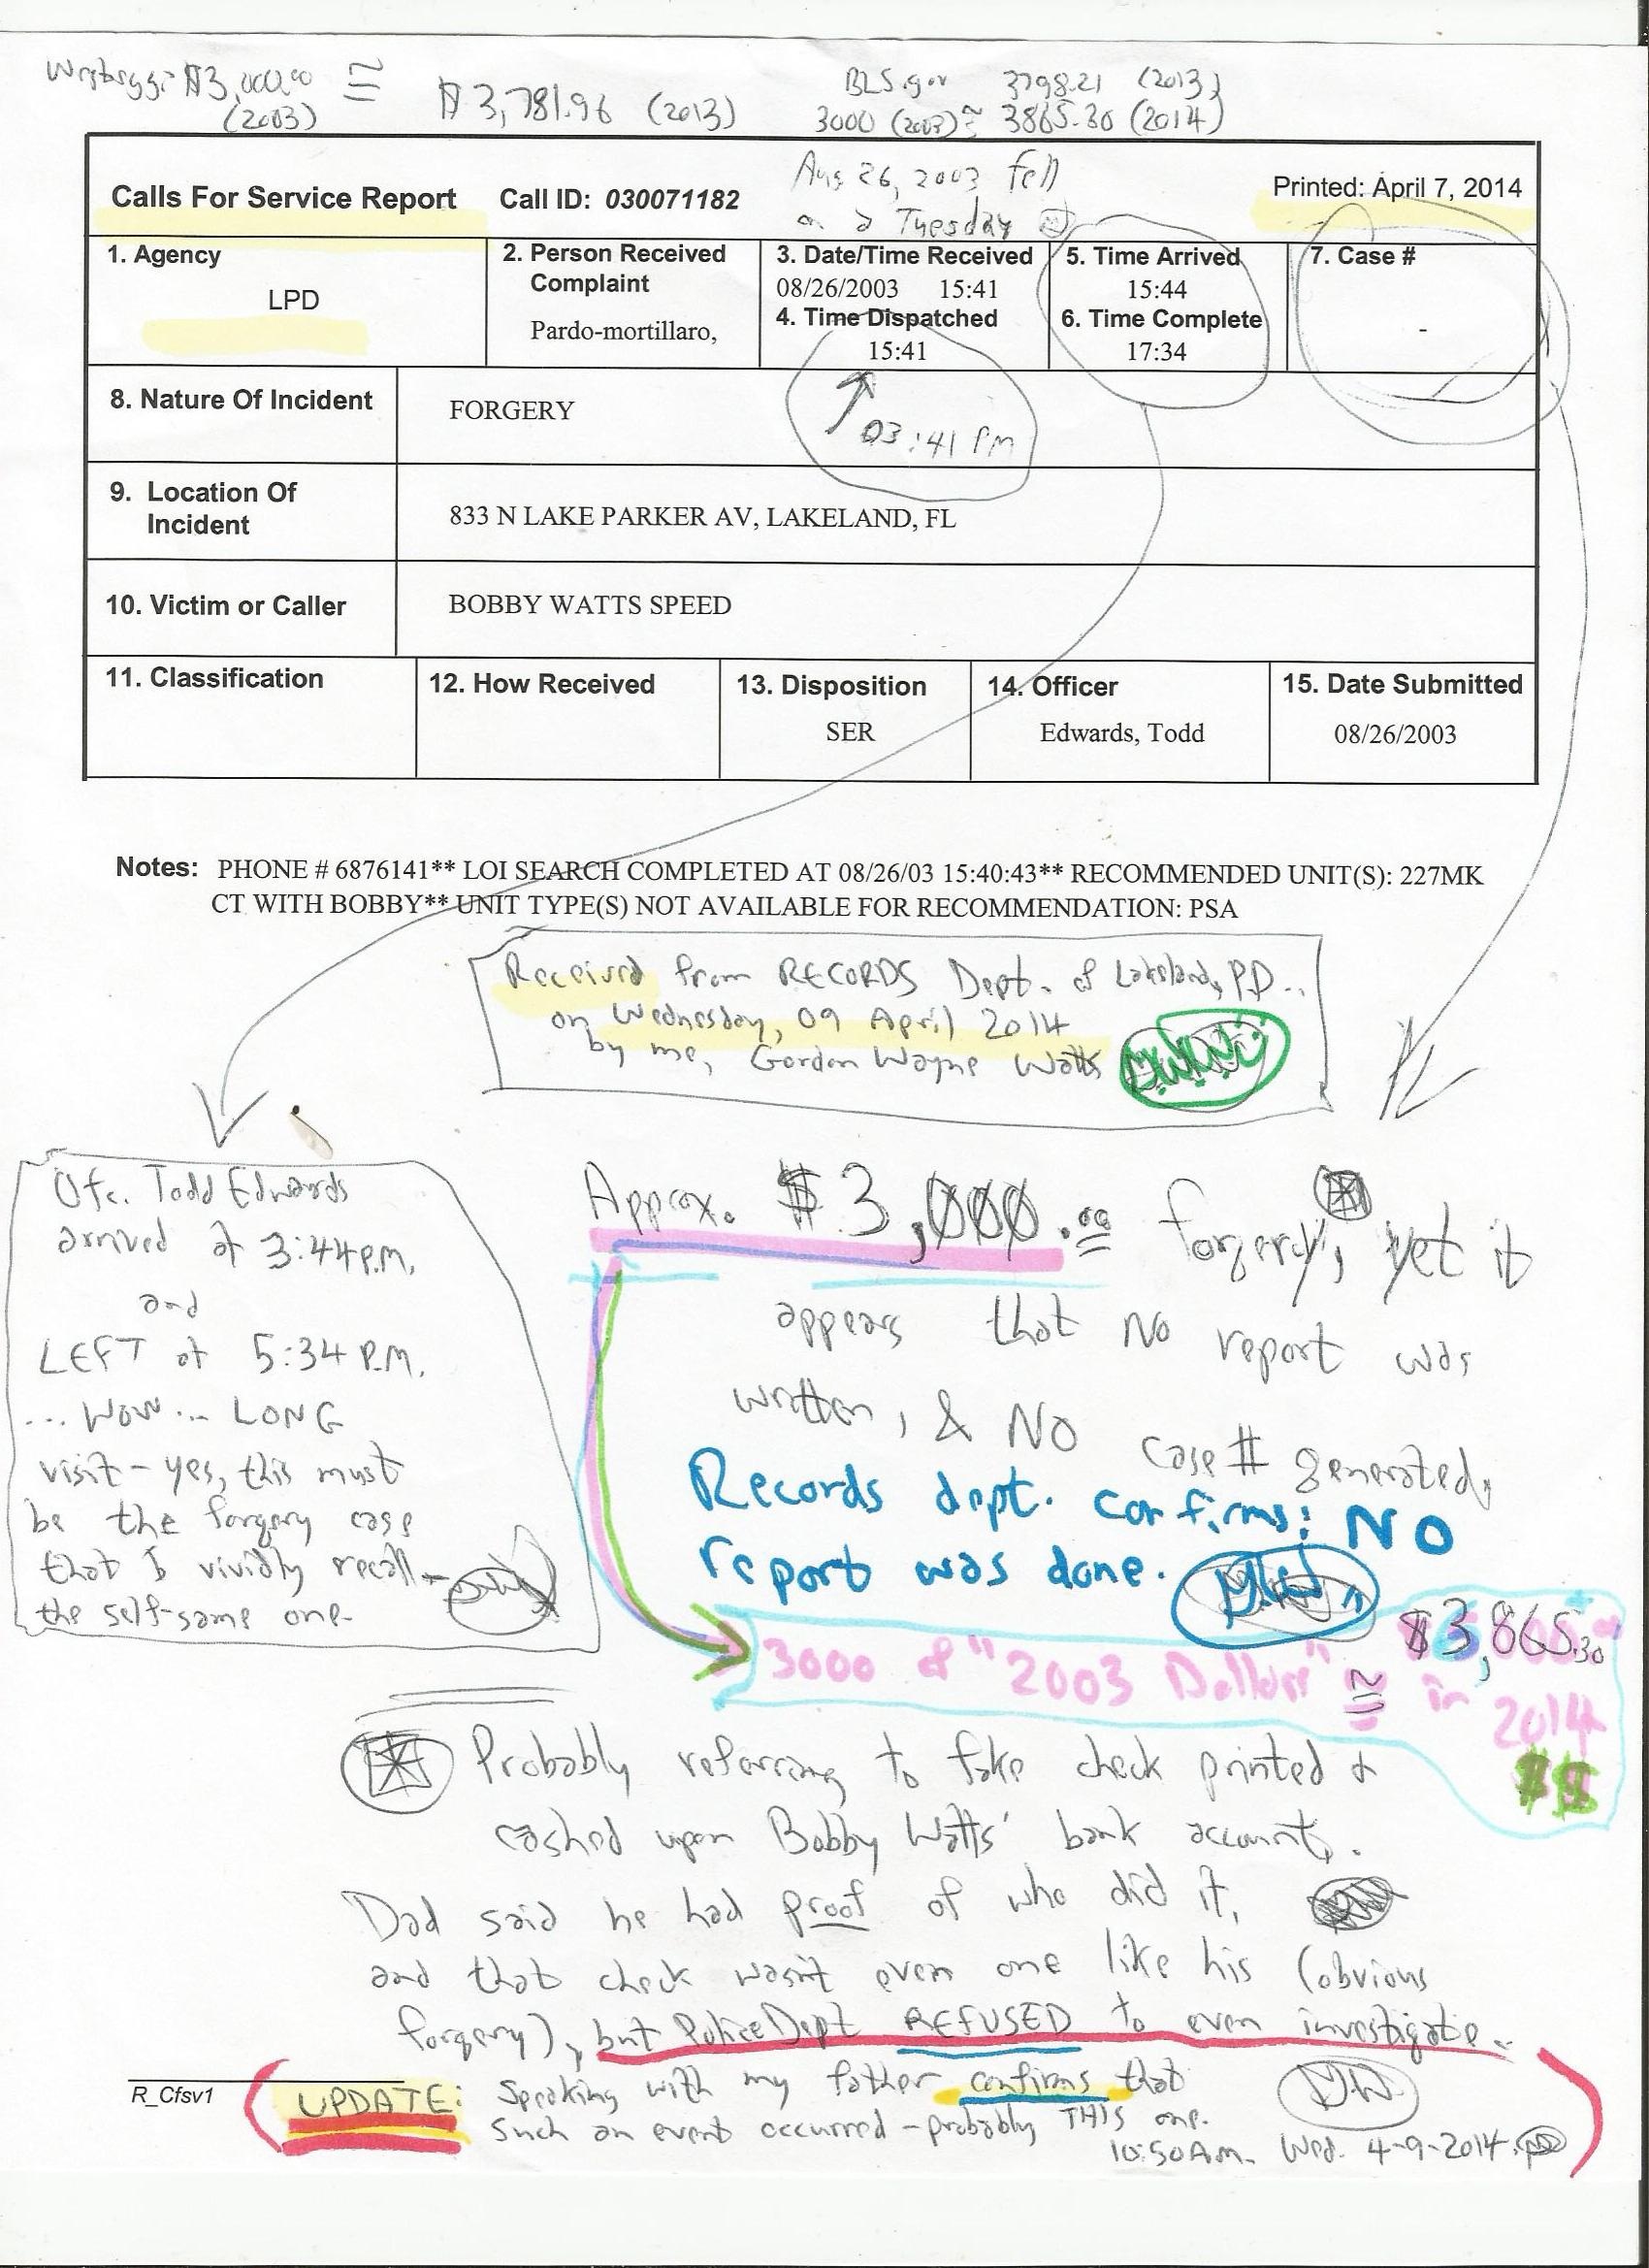 $3,000.00 ≅ $3,781.96 (2013)
(2003)
BLS.gov 3798.21 (2013)
3000 (2003) ≅ 3865.30 (2014)
Calls For Service Report Call ID: 030071182
Aug 26, 2003 fell
on a Tuesday
Printed: April 7, 2014
1. Agency
LPD
2. Person Received
Complaint
Pardo-mortillaro,
3. Date/Time Received
08/26/2003 15:41
4. Time Dispatched
15:41
03:41 PM
5. Time Arrived
15:44
6. Time Complete
17:34
7. Case #
-
8. Nature Of Incident
FORGERY
9. Location Of
Incident
833 N LAKE PARKER AV, LAKELAND, FL
10. Victim or Caller
BOBBY WATTS SPEED
11. Classification
12. How Received
13. Disposition
SER
14. Officer
Edwards, Todd
15. Date Submitted
08/26/2003
Notes: PHONE # 6876141** LOI SEARCH COMPLETED AT 08/26/03 15:40:43** RECOMMENDED UNIT(S): 227MK
CT WITH BOBBY** UNIT TYPE(S) NOT AVAILABLE FOR RECOMMENDATION: PSA
Received from RECORDS Dept. of Lakeland, P.D..
on Wednesday, 09 April 2014
by me, Gordon Wayne Watts
Ofc. Todd Edwards
arrived at 3:44 P.M.
and
LEFT at 5:34 P.M.
... WOW ... LONG
visit - yes, this must
be the forgery case
that I vividly recall -
the self-same one.
Approx. $3,000.00 forgery, yet it
appears that NO report was
written, & NO case # generated.
Records dept. confirms: NO
report was done.
3000 of "2003 Dollars" ≅ $3,865.30 in
2014
$$
Probably referring to fake check printed &
cashed upon Bobby Watts' bank account.
Dad said he had proof of who did it,
and that check wasn't even one like his (obvious
forgery), but Police Dept REFUSED to even investigate.
R_Cfsv1
(UPDATE: Speaking with my father confirms that
such an event occurred - probably THIS one.
10:50 A.M. Wed. 4-9-2014.)